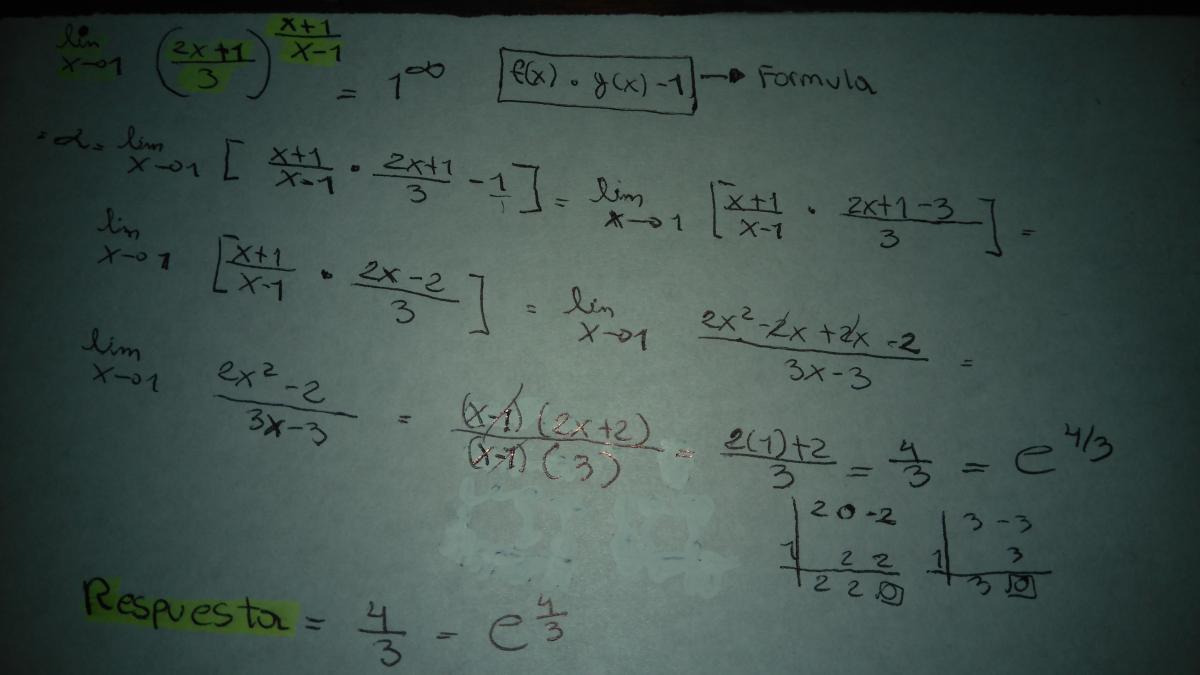 lim x→1 ((2x+1)/3)^((x+1)/(x-1)) = 1^∞ f(x) · g(x) - 1 → Formula
= α = lim x→1 [ (x+1)/(x-1) · (2x+1)/3 - 1/1 ] = lim x→1 [ (x+1)/(x-1) · (2x+1-3)/3 ] =
lim x→1 [ (x+1)/(x-1) · (2x-2)/3 ] = lim x→1 (2x²-2x+2x-2)/(3x-3) =
lim x→1 (2x²-2)/(3x-3) = ((x-1)(2x+2))/((x-1)(3)) = (2(1)+2)/3 = 4/3 = e^(4/3)
2 0 -2 3 -3
1 2 2 1 3
2 2 0 3 0
Respuesta = 4/3 = e^(4/3)